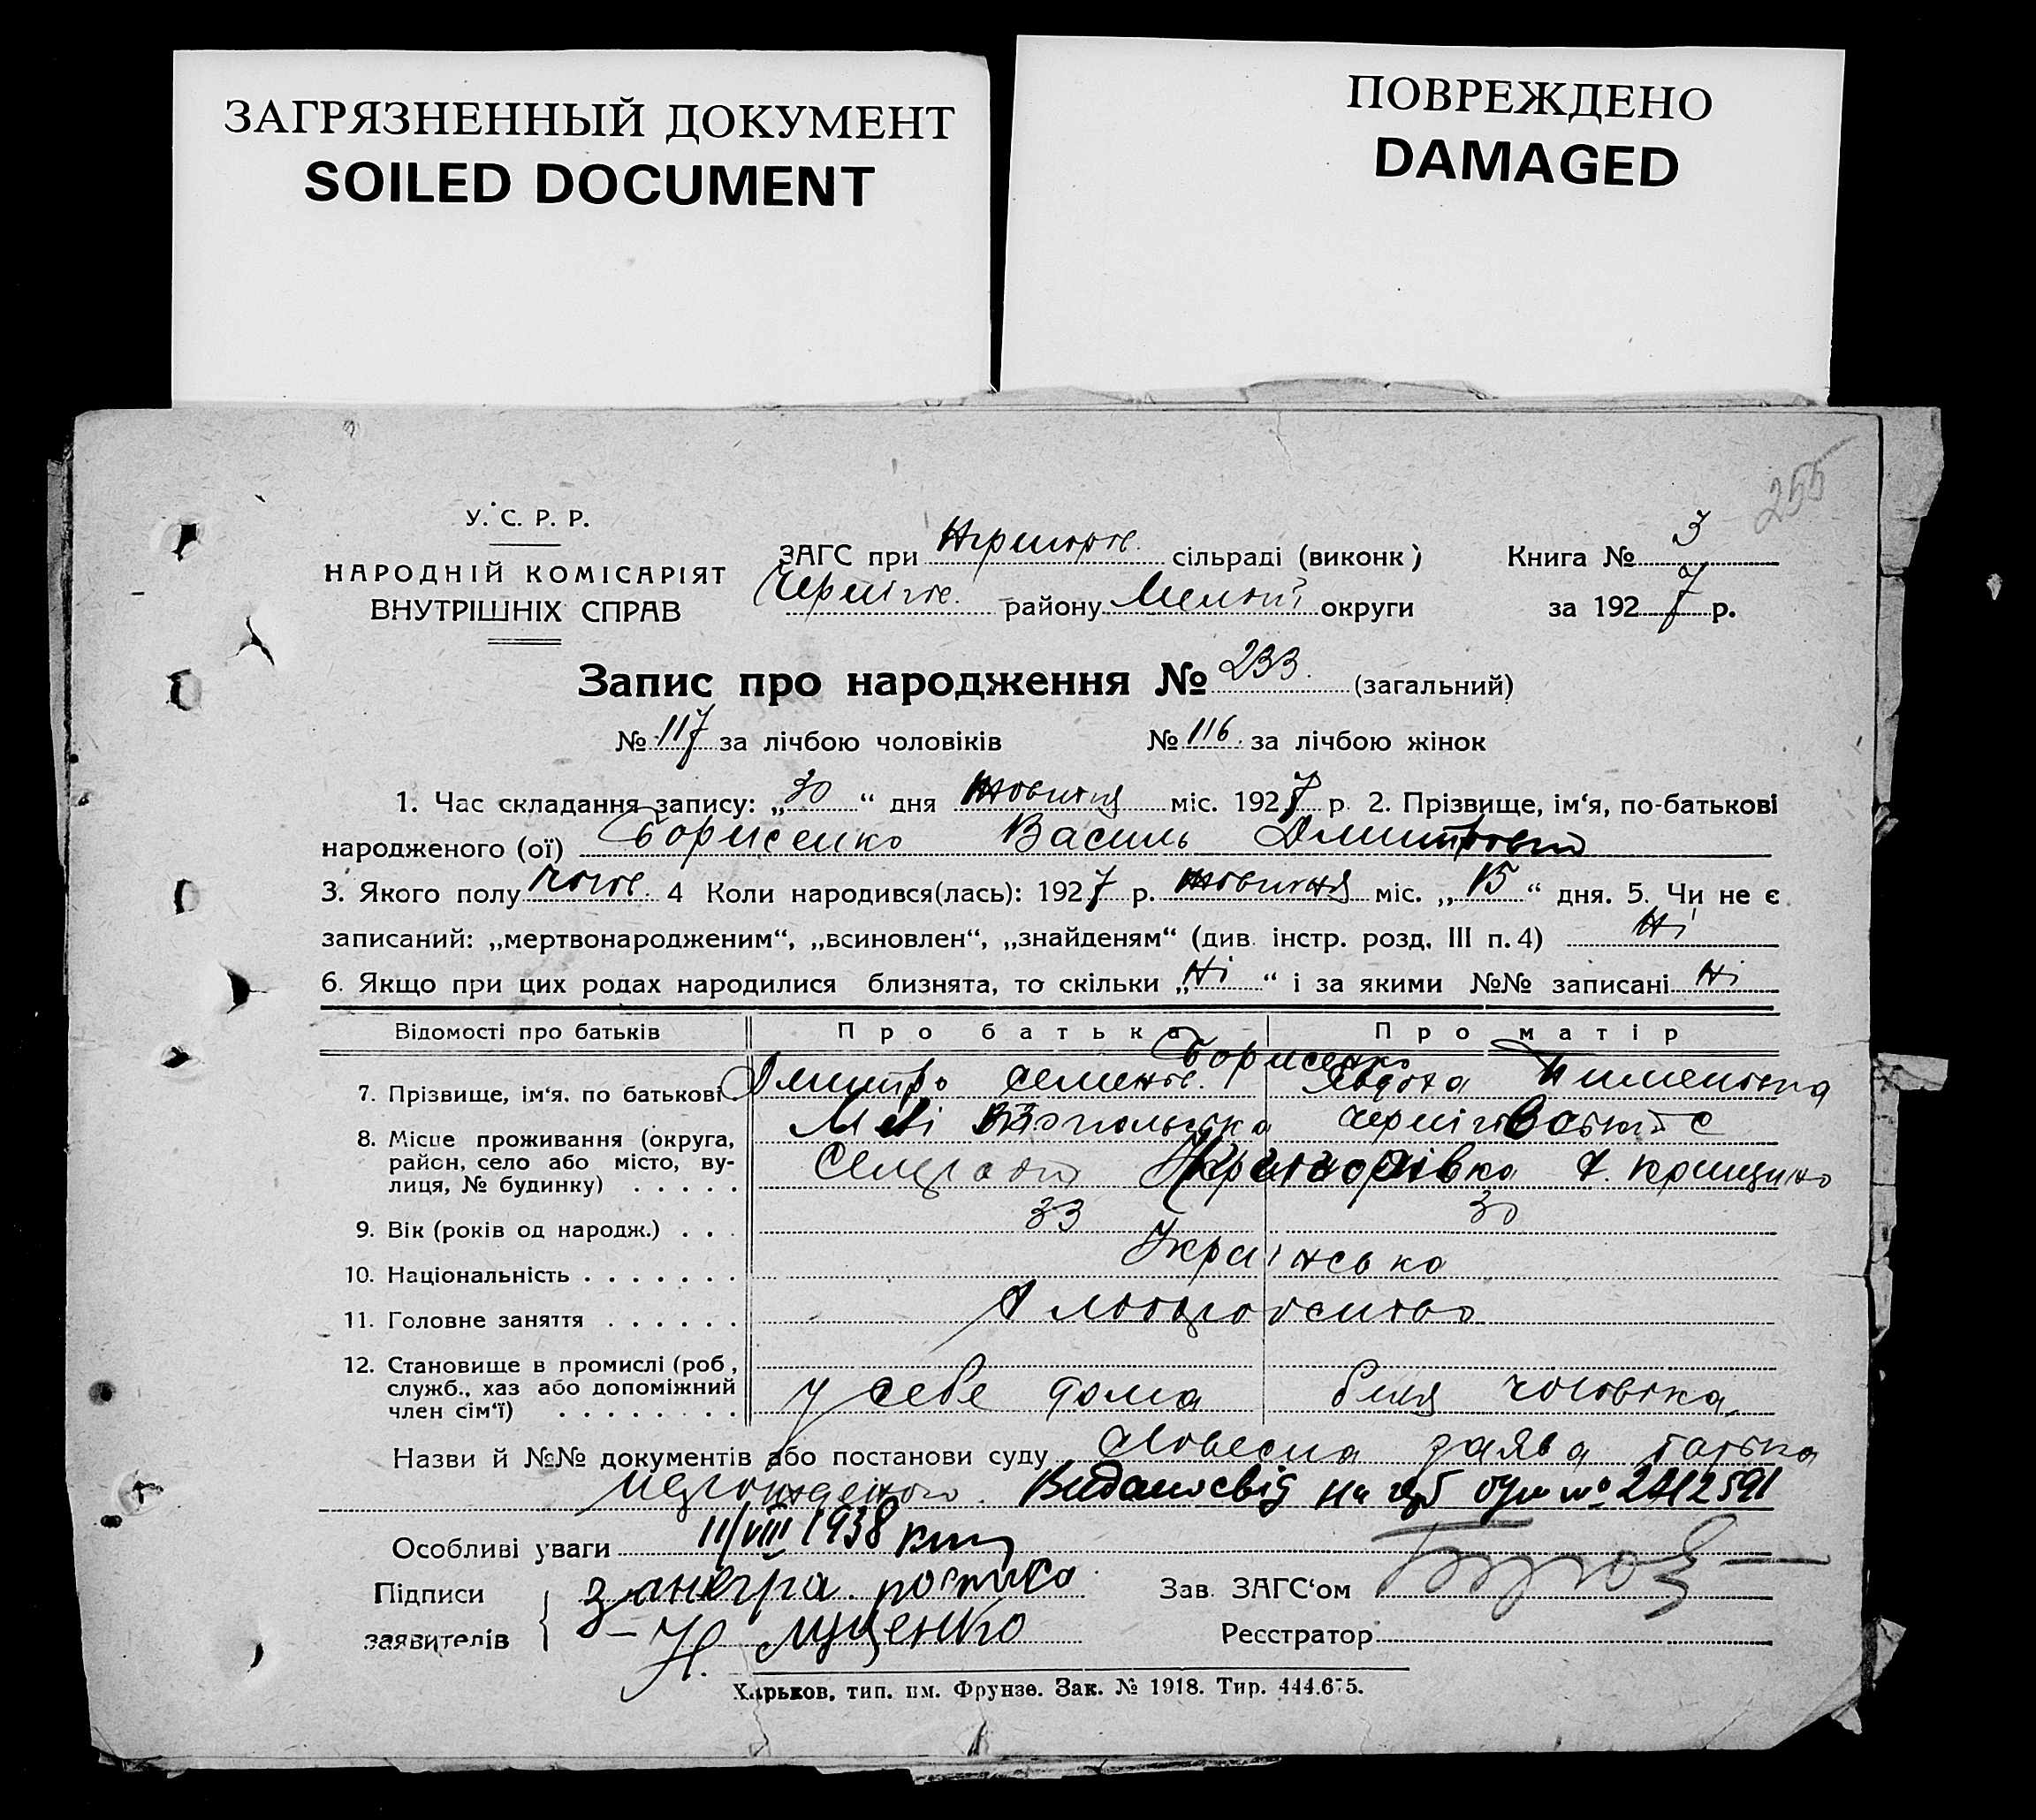 ЗАГРЯЗНЕННЫЙ ДОКУМЕНТ
SOILED DOCUMENT
ПОВРЕЖДЕНО
DAMAGED
255
У. С. Р. Р.
НАРОДНІЙ КОМІСАРІЯТ
ВНУТРІШНІХ СПРАВ
ЗАГС при сільраді (виконк) Книга № 3
Чернігов. району Меліт округи за 1927 р.
Запис про народження № 233. (загальний)
№ 117 за лічбою чоловіків № 116. за лічбою жінок
1. Час складання запису: „30“ дня жовтня міс. 1927 р. 2. Прізвище, ім‘я, по-батькові
народженого (ої) Борисенко Василь Дмитрович
3. Якого полу чолов. 4 Коли народився(лась): 1927 р. жовтня міс. „15“ дня. 5. Чи не є
записаний: „мертвонародженим“, „всиновлен“, „знайденям“ (див. інстр. розд. III п. 4) Ні
6. Якщо при цих родах народилися близнята, то скільки „Ні“ і за якими №№ записані Ні
Відомості про батьків Про батька Про матір
Борисенко
7. Прізвище, ім‘я. по батькові Дмитро Семенов. Явдоха Пименовна
8. Місце проживання (округа, район, село або місто, вулиця, № будинку)
9. Вік (років од народж.) 33 30
10. Національність Українська
11. Головне заняття
12. Становище в промислі (роб, служб., хаз або допоміжний член сім‘ї) у себе дома біля чоловіка
Назви й №№ документів або постанови суду Словесна заява батька
Видано свід на № 2412591
Особливі уваги 11/VIII 1938
Підписи
заявителів
Н. Луценко
Зав. ЗАГС‘ом
Реєстратор
Харьков, тип. им. Фрунзе. Зак. № 1918. Тир. 444.675.